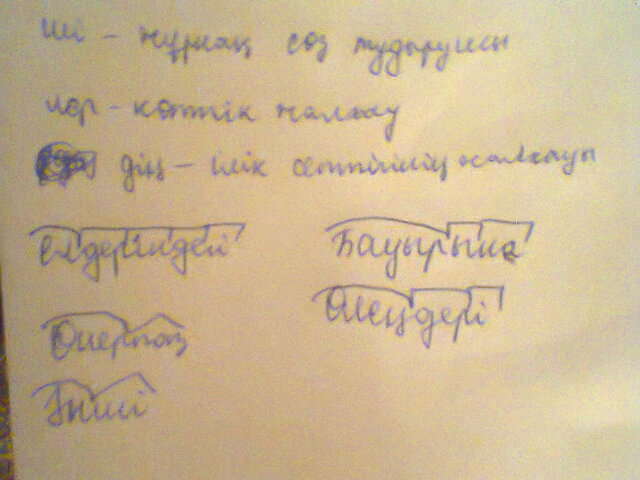 ші - жұрнақ сөз тудырушы
лар - көптік жалғау
дің - ілік септігінің жалғауы
Елдеріндегі Бауырына
Өнерпаз Өлеңдері
Әнші